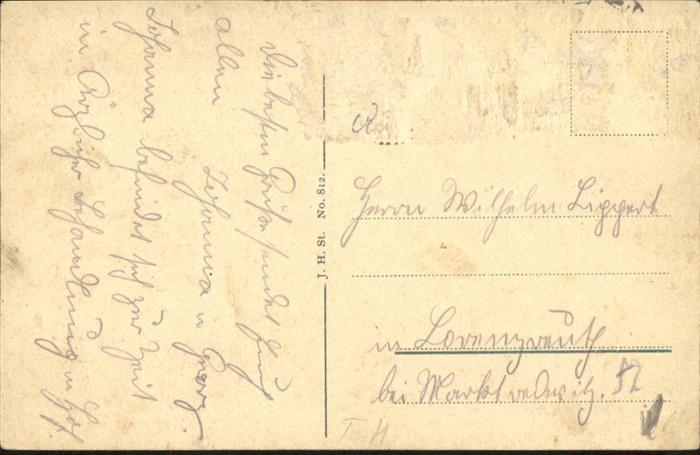 Die besten Grüße sendet Euch
allen
Johanna u Georg.
Johanna befindet sich zur Zeit
in Ärzlicher Behandlung in Hof.
J. H. St. No. 812.
Herrn Wilhelm Lippert
in Lorenzreuth
bei Marktredwitz.